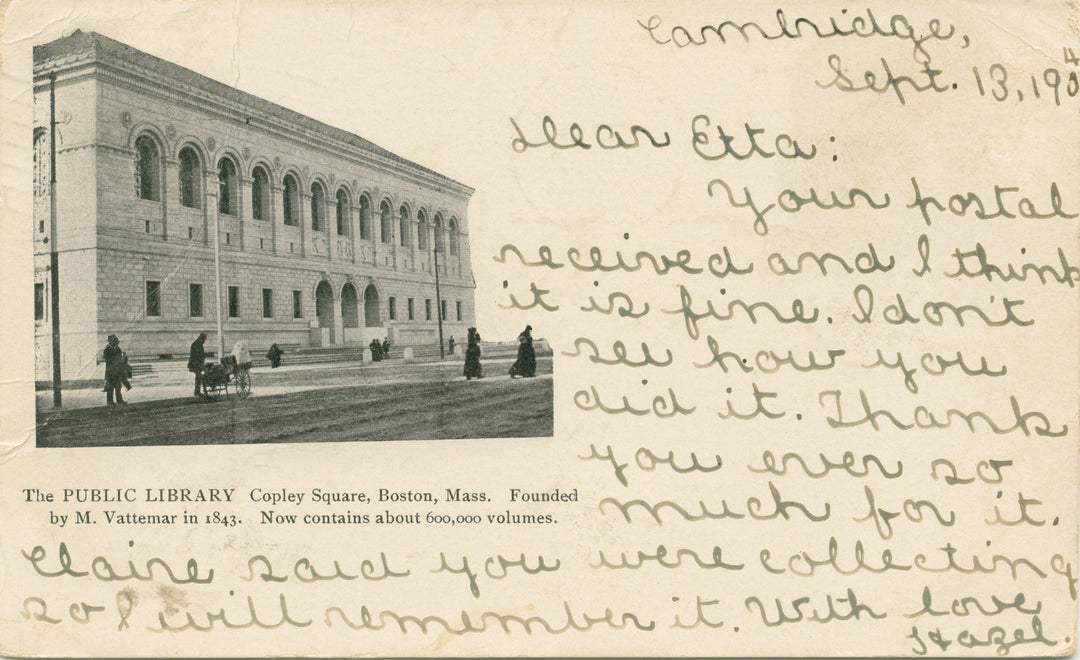 Cambridge,
Sept. 13, 1904
Dear Etta:
Your postal
received and I think
it is fine. I don't
see how you
did it. Thank
you ever so
much for it.
The PUBLIC LIBRARY Copley Square, Boston, Mass. Founded
by M. Vattemar in 1843. Now contains about 600,000 volumes.
Claire said you were collecting
so I will remember it. With love
Hazel.